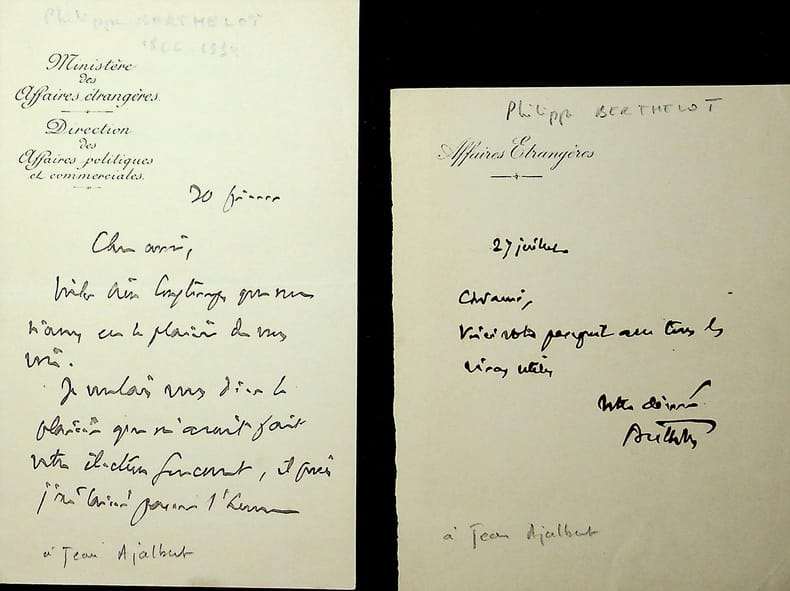 Philippe BERTHELOT
1866 1934
Ministère
des
Affaires étrangères.
Direction
des
Affaires politiques
et commerciales.
20 février
Cher ami,
longtemps que nous
n'avons eu le plaisir de vous
Je voulais vous dire le
plaisir que m'avait fait
votre élection Goncourt,
j'ai laissé passer l'heure
à Jean Ajalbert
Philippe BERTHELOT
Affaires Etrangères
27 juillet
Cher ami,
Voici votre passeport avec tous les
visas utiles
Votre dévoué
Berthelot
à Jean Ajalbert